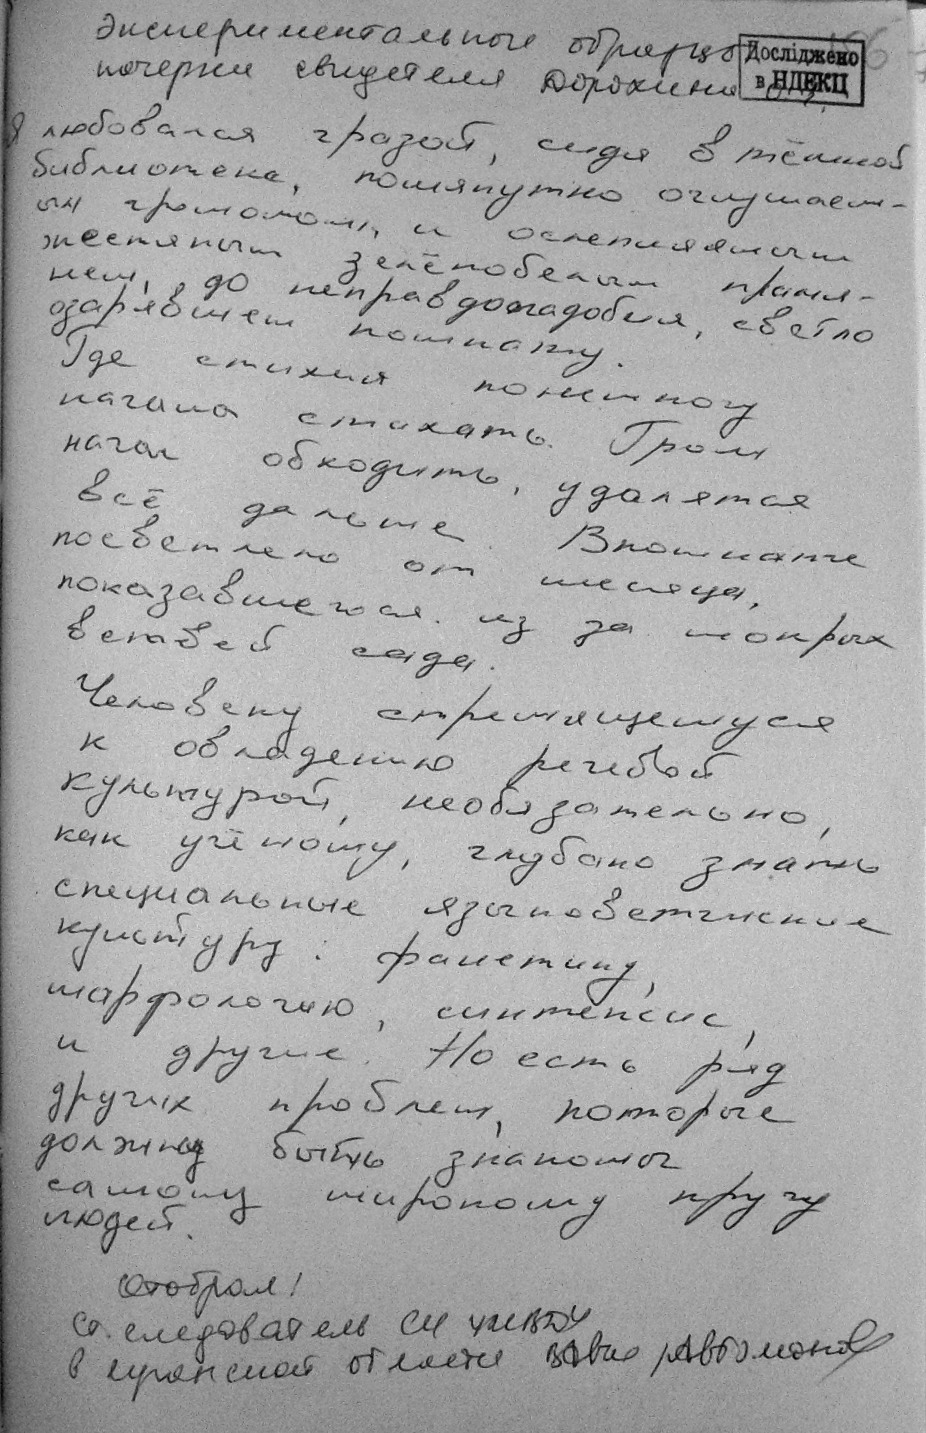 Экспериментальные образцы
почерка свидетеля Дорохина
Досліджено
в НДЕКЦ
Я любовался гразой, сидя в тёмной
библиотеке, поминутно оглушаем-
ый громом, и ослепляемым
жестяным зелёнобелым пламя-
нем, до неправдоподобия, светло
озарявшем комнату.
Где стихия понемногу
начала стихать. Гром
начал обходить, удалятся
всё дальше. Вкомнате
посветлело от месяца,
показавшегося из за мокрых
ветвей сада.
Человеку стремящемуся
к овладению речевой
культурой, необязательно,
как учёному, глубоко знать
специальные языковетческие
культуру: фанетику,
марфологию, синтексис,
и другие. Но есть ряд
других проблем, которые
должны быть знакомы
самому широкому кругу
людей.
Отобрал!
Ст. следователь СУ УМВДУ
в Луганской области